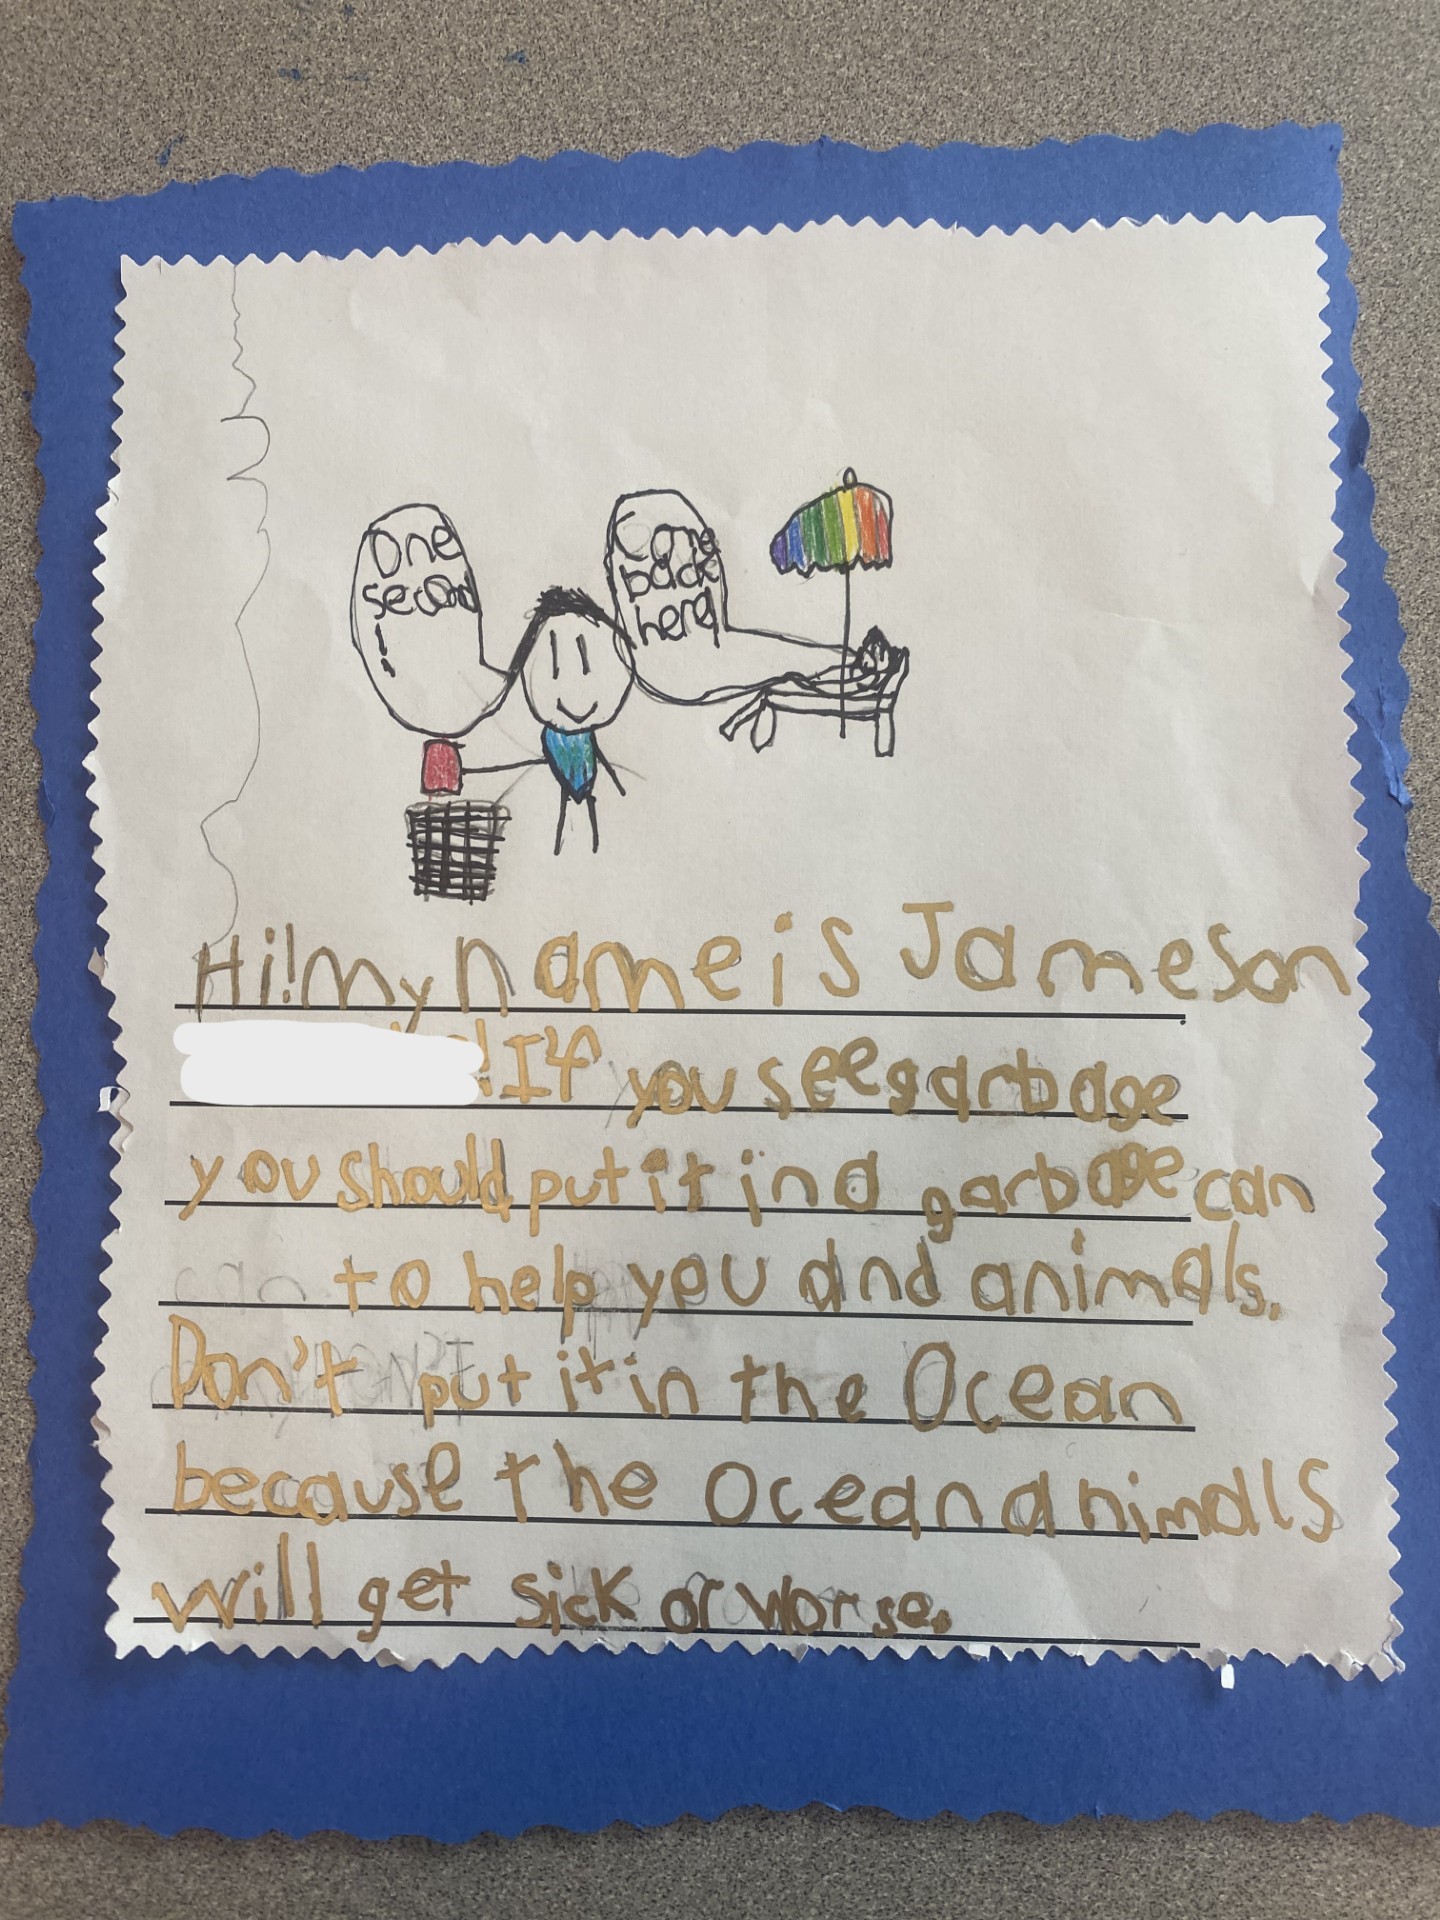 One
second
!
Come
back
here!
Hi! My name is Jameson
! If you see garbage
you should put it in a garbage can
to help you and animals.
Don't put it in the Ocean
because the Ocean animals
will get sick or worse.